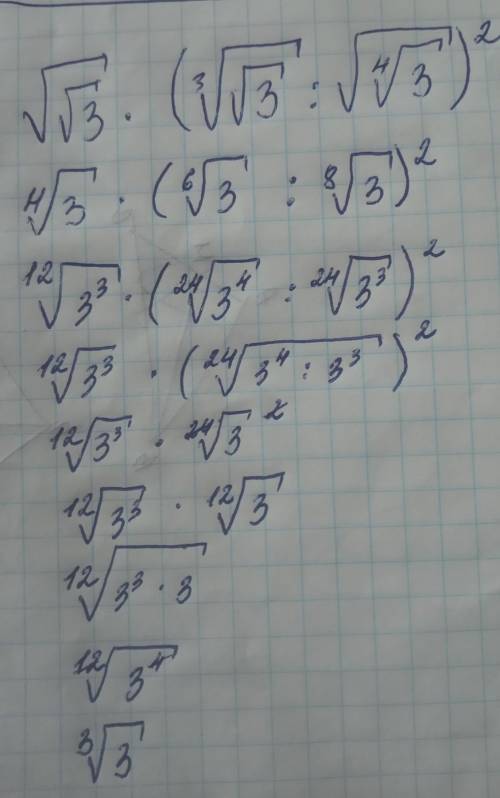 √√3 · (³√√3 : √⁴√3)²
⁴√3 · (⁶√3 : ⁸√3)²
¹²√3³ · (²⁴√3⁴ : ²⁴√3³)²
¹²√3³ · (²⁴√3⁴ : 3³)²
¹²√3³ · ²⁴√3²
¹²√3³ · ¹²√3
¹²√3³ · 3
¹²√3⁴
³√3